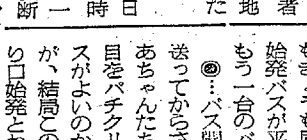 者
地
た
日
時
一
断
始発バスが平
もう一台のバ
…バス開
送ってからさ
あちゃんたち
目をパチクリ
スがよいのか
が、結局この
り口始発と